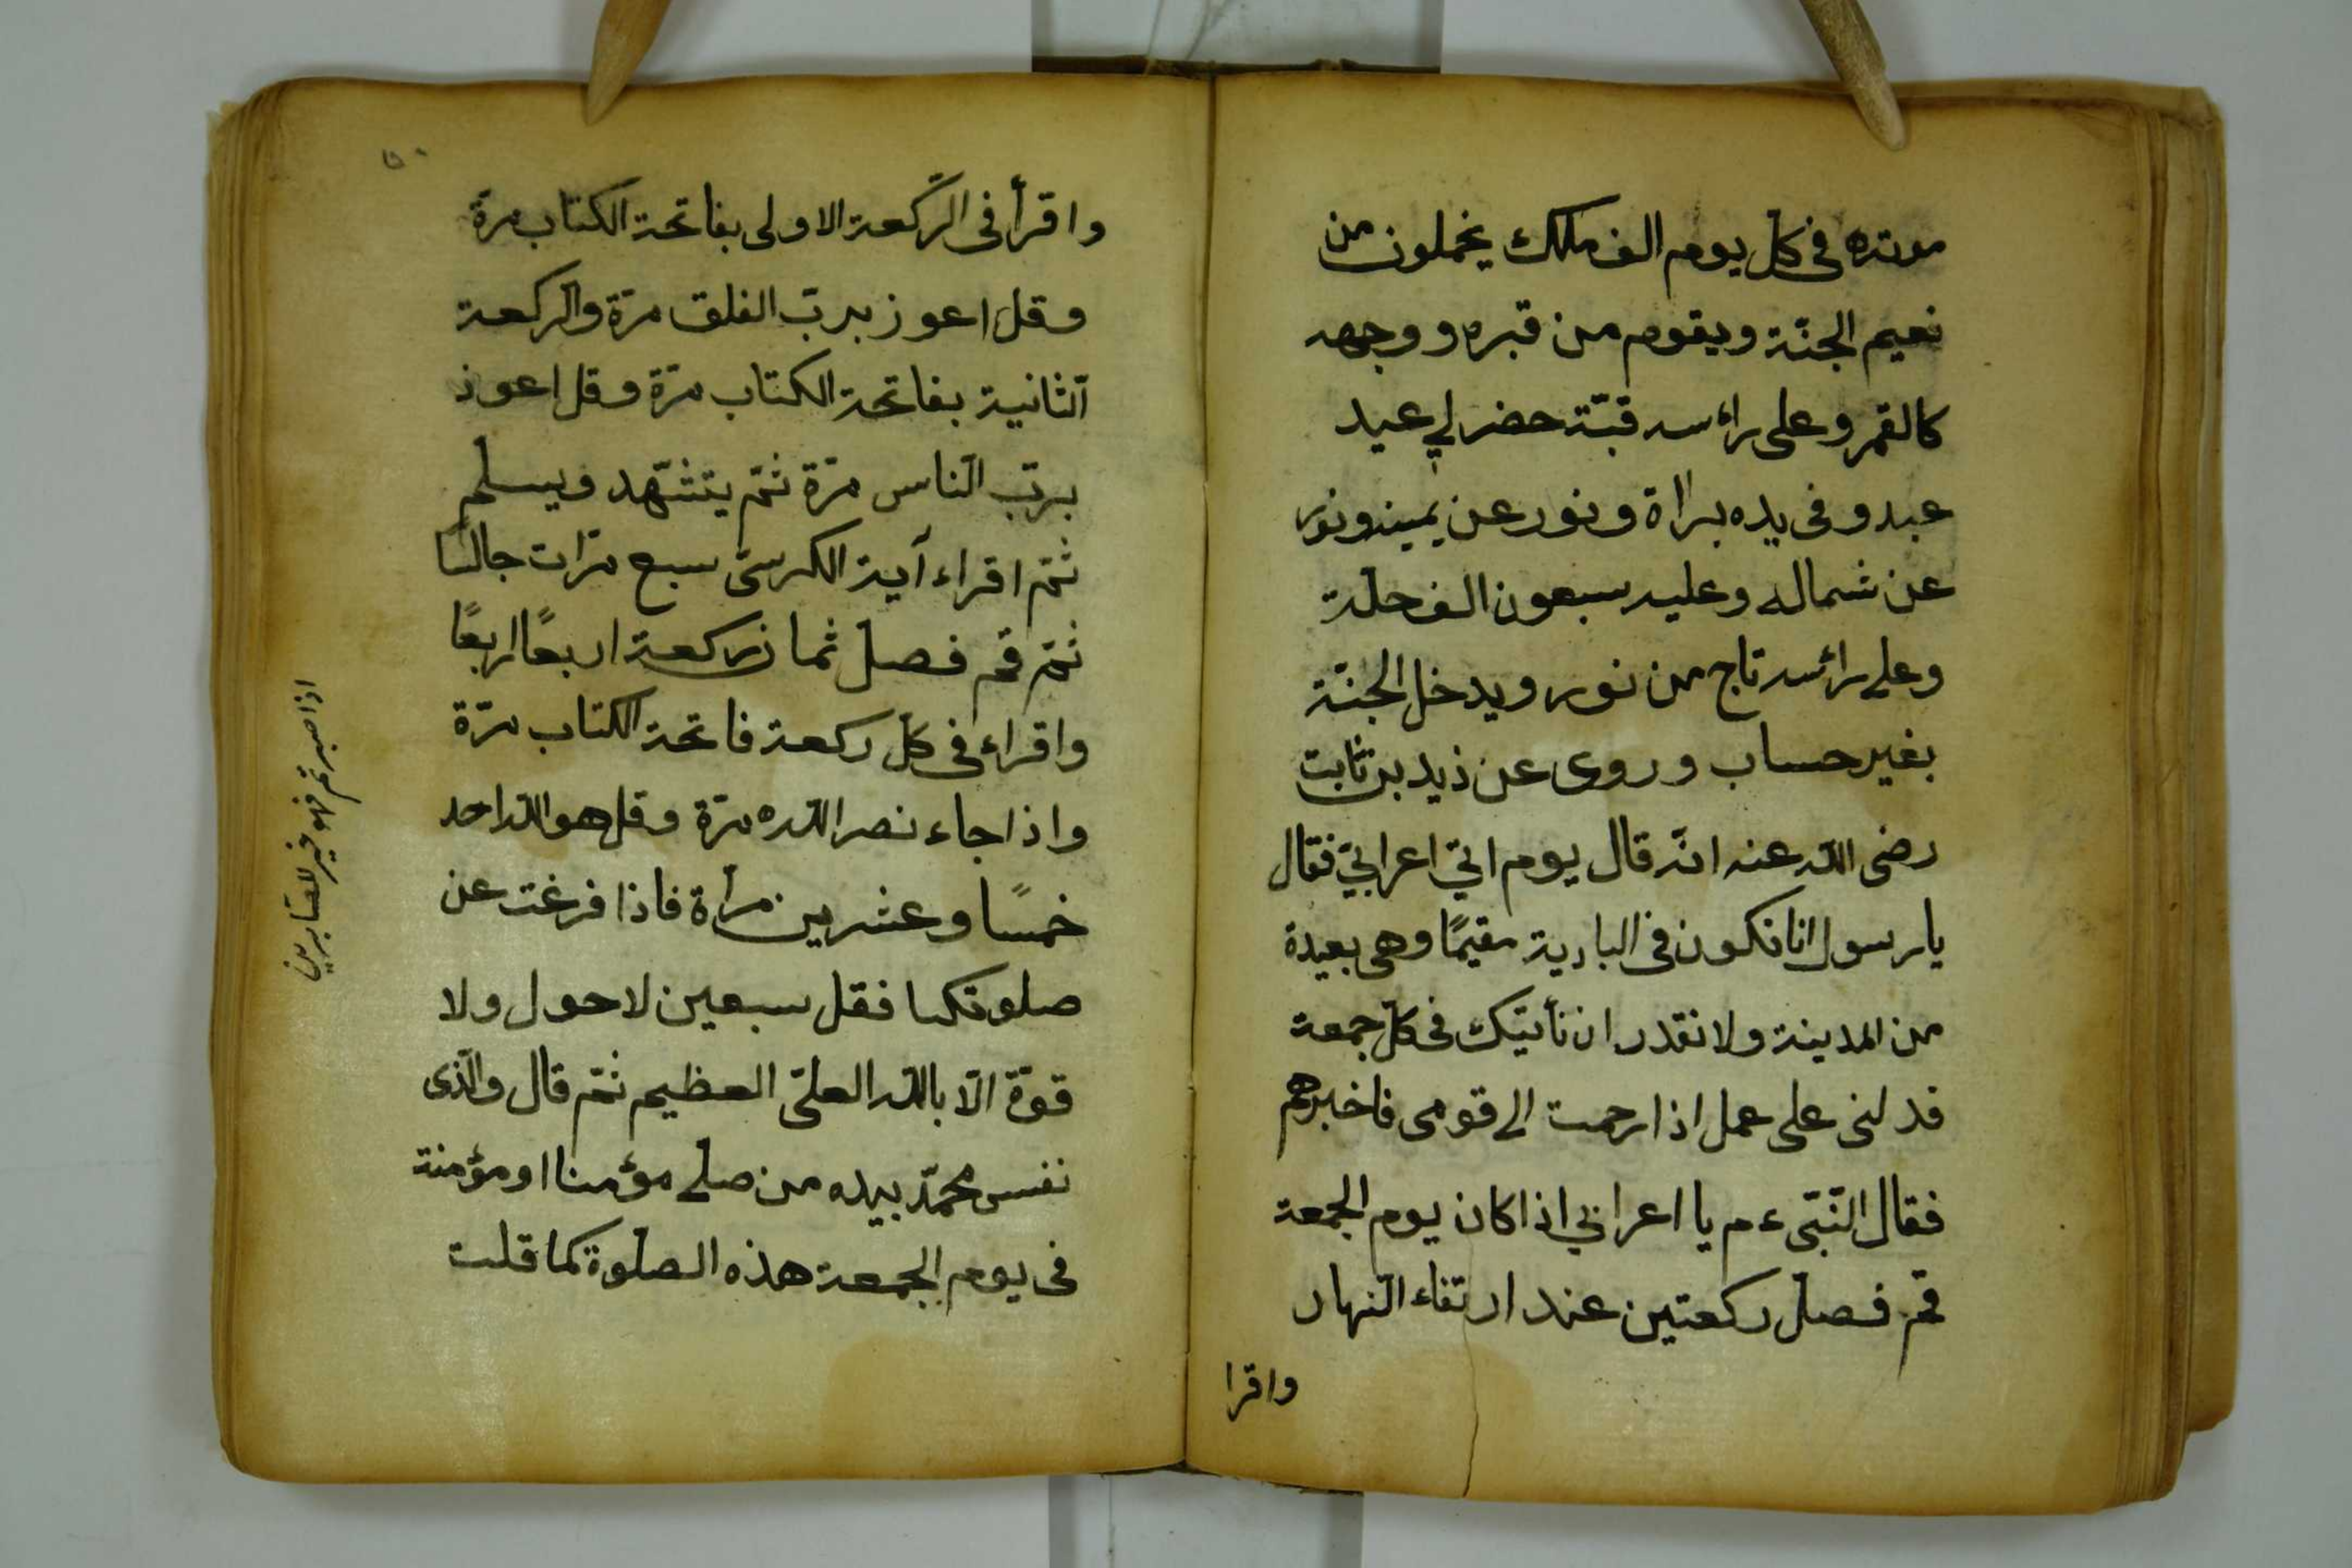 موته في كل يوم الف ملك يحملون من
نعيم الجنّة ويقوم من قبره ووجهه
كالقمر وعلى راءسه قبّة حضر لي عيد
عبد وفى يده براة ونور عن يمينه ونور
عن شماله وعليه سبعون الف حلة
وعلى رائسه تاج من نور ويدخل الجنّة
بغير حساب وروى عن ذيد بن ثابت
رضى الله عنه انّه قال يوم اتي اعرابيّ فقال
يا رسول انا نكون فى البادية مقيمًا وهى بعيدة
من المدينة ولا نقدر ان نأتيك فى كلّ جمعة
فدلنى على عمل اذا رحمت الى قومى فاخبرهم
فقال النّبيّ ءم يا اعرابي اذا كان يوم الجمعة
قم فصل ركعتين عند ارتقاء النهار
واقرا
٥٠
واقرأ فى الرّكعة الاولى بفاتحة الكتاب مرة
وقل اعوز بربّ الفلق مرّة والركعة
الثانية بفاتحة الكتاب مرّة وقل اعوذ
بربّ النّاس مرّة ثمّ يتشهّد ويسلم
ثمّ اقراء آية الكرسيّ سبع مرّات جالسا
ثمّ قم فصل ثمان ركعة اربعًا اربعًا
واقراء فى كلّ ركعة فاتحة الكتاب مرّة
واذا جاء نصر الله مرّة وقل هو الله احد
خمسًا وعشرين مرأة فاذا فرغت عن
صلوتكما فقل سبعين لا حول ولا
قوّة الّا بالله العلىّ العظيم ثمّ قال والّذى
نفس محمّد بيده من صلى مؤمنا او مؤمنة
فى يوم الجمعة هذه الصلوة كما قلت
اذا صبرتم فهو خير للصّابرين